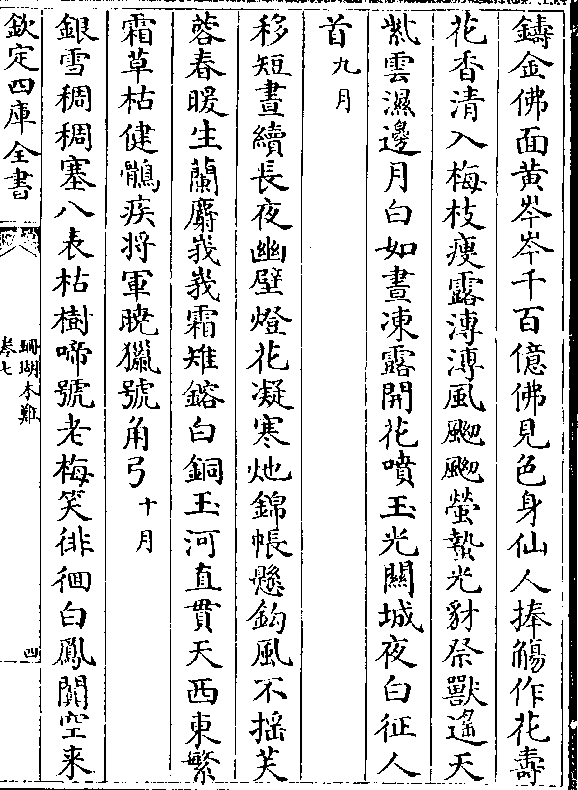 鑄金佛面黃岑岑千百億佛見色身仙人捧觴作花壽
花香清入梅枝瘦露漙漙風颼颼螢蟄光豺祭獸遙天
紫雲濕邊月白如晝凍露開花噴玉光關城夜白征人
首九月
移短晝續長夜幽壁燈花凝寒灺錦帳懸鈎風不揺芙
蓉春暖生蘭麝峩峩霜雉鎔白銅玉河直貫天西東繁
霜草枯健鶻疾將軍曉獵號角弓十月
銀雪稠稠塞八表枯樹啼號老梅笑徘徊白鳳闢空来
欽定四庫全書
珊瑚木難
卷七
四